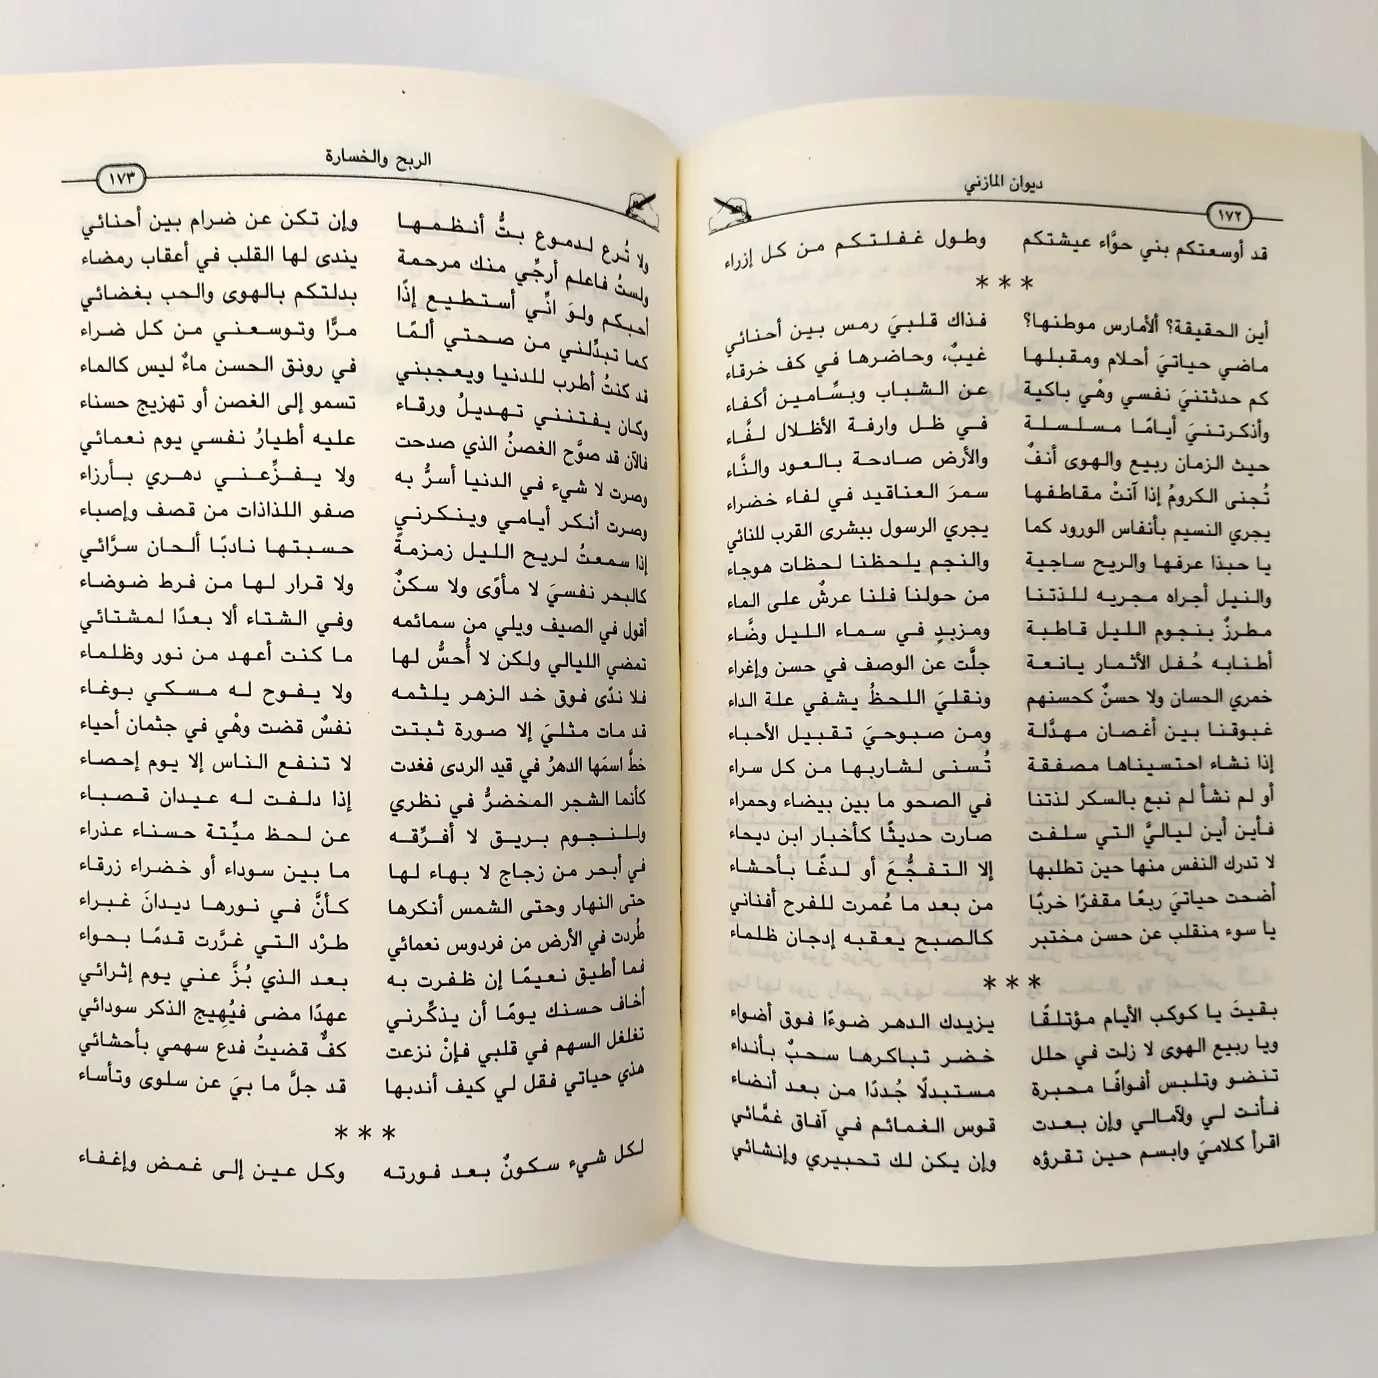 ديوان المازني
١٧٢
قد أوسعتكم بني حوَّاء عيشتكم وطول غفلتكم من كل إزراء
* * *
أين الحقيقة؟ ألأمارس موطنها؟ فذاك قلبيَ رمس بين أحنائي
ماضي حياتيَ أحلام ومقبلها غيبٌ، وحاضرها في كف خرقاء
كم حدثتنيَ نفسي وهْي باكية عن الشباب وبسَّامين أكفاء
وأذكرتنيَ أيامًا مسلسلة في ظل وارفة الأظلال لفَّاء
حيث الزمان ربيع والهوى أنفٌ والأرض صادحة بالعود والنَّاء
تُجنى الكرومُ إذا آنتْ مقاطفها سمرَ العناقيد في لفاء خضراء
يجري النسيم بأنفاس الورود كما يجري الرسول ببشرى القرب للنائي
يا حبذا عرفها والريح ساجية والنجم يلحظنا لحظات هوجاء
والنيل أجراه مجريه للذتنا من حولنا فلنا عرشٌ على الماء
مطرزٌ بنجوم الليل قاطبة ومزبدٍ في سماء الليل وضَّاء
أطنابه حُفل الأثمار يانعة جلَّت عن الوصف في حسن وإغراء
خمري الحسان ولا حسنٌ كحسنهم ونقليَ اللحظُ يشفي علة الداء
غبوقنا بين أغصان مهدَّلة ومن صبوحيَ تقبيل الأحباء
إذا نشاء احتسيناها مصفقة تُسنى لشاربها من كل سراء
أو لم نشأ لم نبع بالسكر لذتنا في الصحو ما بين بيضاء وحمراء
فأين أين لياليَّ التي سلفت صارت حديثًا كأخبار ابن ديحاء
لا تدرك النفس منها حين تطلبها إلا التفجُّعَ أو لدغًا بأحشاء
أضحت حياتيَ ربعًا مقفرًا خربًا من بعد ما عُمرت للفرح أفناني
يا سوء منقلب عن حسن مختبر كالصبح يعقبه إدجان ظلماء
* * *
بقيتَ يا كوكب الأيام مؤتلقًا يزيدك الدهر ضوءًا فوق أضواء
ويا ربيع الهوى لا زلت في حلل خضر تباكرها سحبٌ بأنداء
تنضو وتلبس أفوافًا محبرة مستبدلًا جُددًا من بعد أنضاء
فأنت لي ولآمالي وإن بعدت قوس الغمائم في آفاق غمَّائي
اقرأ كلاميَ وابسم حين تقرؤه وإن يكن لك تحبيري وإنشائي
الربح والخسارة
١٧٣
ولا تُرع لدموع بتُّ أنظمها وإن تكن عن ضرام بين أحنائي
ولستُ فاعلم أرجِّي منك مرحمة يندى لها القلب في أعقاب رمضاء
أحبكم ولوَ انِّي أستطيع إذًا بدلتكم بالهوى والحب بغضائي
كما تبدِّلني من صحتي ألمًا مرًّا وتوسعني من كل ضراء
قد كنتُ أطرب للدنيا ويعجبني في رونق الحسن ماءٌ ليس كالماء
وكان يفتنني تهديلُ ورقاء تسمو إلى الغصن أو تهزيج حسناء
فالآن قد صوَّح الغصنُ الذي صدحت عليه أطيارُ نفسي يوم نعمائي
وصرت لا شيء في الدنيا أسرُّ به ولا يفزِّعني دهري بأرزاء
وصرت أنكر أيامي وينكرني صفو اللذاذات من قصف وإصباء
إذا سمعتُ لريح الليل زمزمةً حسبتها نادبًا ألحان سرَّائي
كالبحر نفسيَ لا مأوًى ولا سكنٌ ولا قرار لها من فرط ضوضاء
أقول في الصيف ويلي من سمائمه وفي الشتاء ألا بعدًا لمشتائي
تمضي الليالي ولكن لا أُحسُّ لها ما كنت أعهد من نور وظلماء
فلا ندًى فوق خد الزهر يلثمه ولا يفوح له مسكي بوغاء
قد مات مثليَ إلا صورة ثبتت نفسٌ قضت وهْي في جثمان أحياء
خطَّ اسمَها الدهرُ في قيد الردى فغدت لا تنفع الناس إلا يوم إحصاء
كأنما الشجر المخضرُّ في نظري إذا دلفت له عيدان قصباء
وللنجوم بريق لا أفرِّقه عن لحظ ميِّتة حسناء عذراء
في أبحر من زجاج لا بهاء لها ما بين سوداء أو خضراء زرقاء
حتى النهار وحتى الشمس أنكرها كأنَّ في نورها ديدانَ غبراء
طُردت في الأرض من فردوس نعمائي طرْد التي غرَّرت قدمًا بحواء
فما أطيق نعيمًا إن ظفرت به بعد الذي بُزَّ عني يوم إثرائي
أخاف حسنك يومًا أن يذكِّرني عهدًا مضى فيُهيج الذكر سودائي
تغلغل السهم في قلبي فإنْ نزعت كفٌّ قضيتُ فدع سهمي بأحشائي
هذي حياتي فقل لي كيف أندبها قد جلَّ ما بيَ عن سلوى وتأساء
* * *
لكل شيء سكونٌ بعد فورته وكل عين إلى غمض وإغفاء